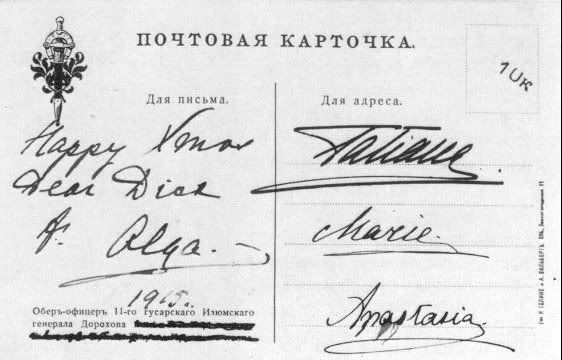 ПОЧТОВАЯ КАРТОЧКА.
1 UK
Для письма.
Happy Xmas
Dear Dick
A.
Olga.
1915.
Оберъ-офицеръ 11-го гусарскаго Изюмскаго
генерала Дорохова
Для адреса.
Tatiana.
Marie.
Anastasia.